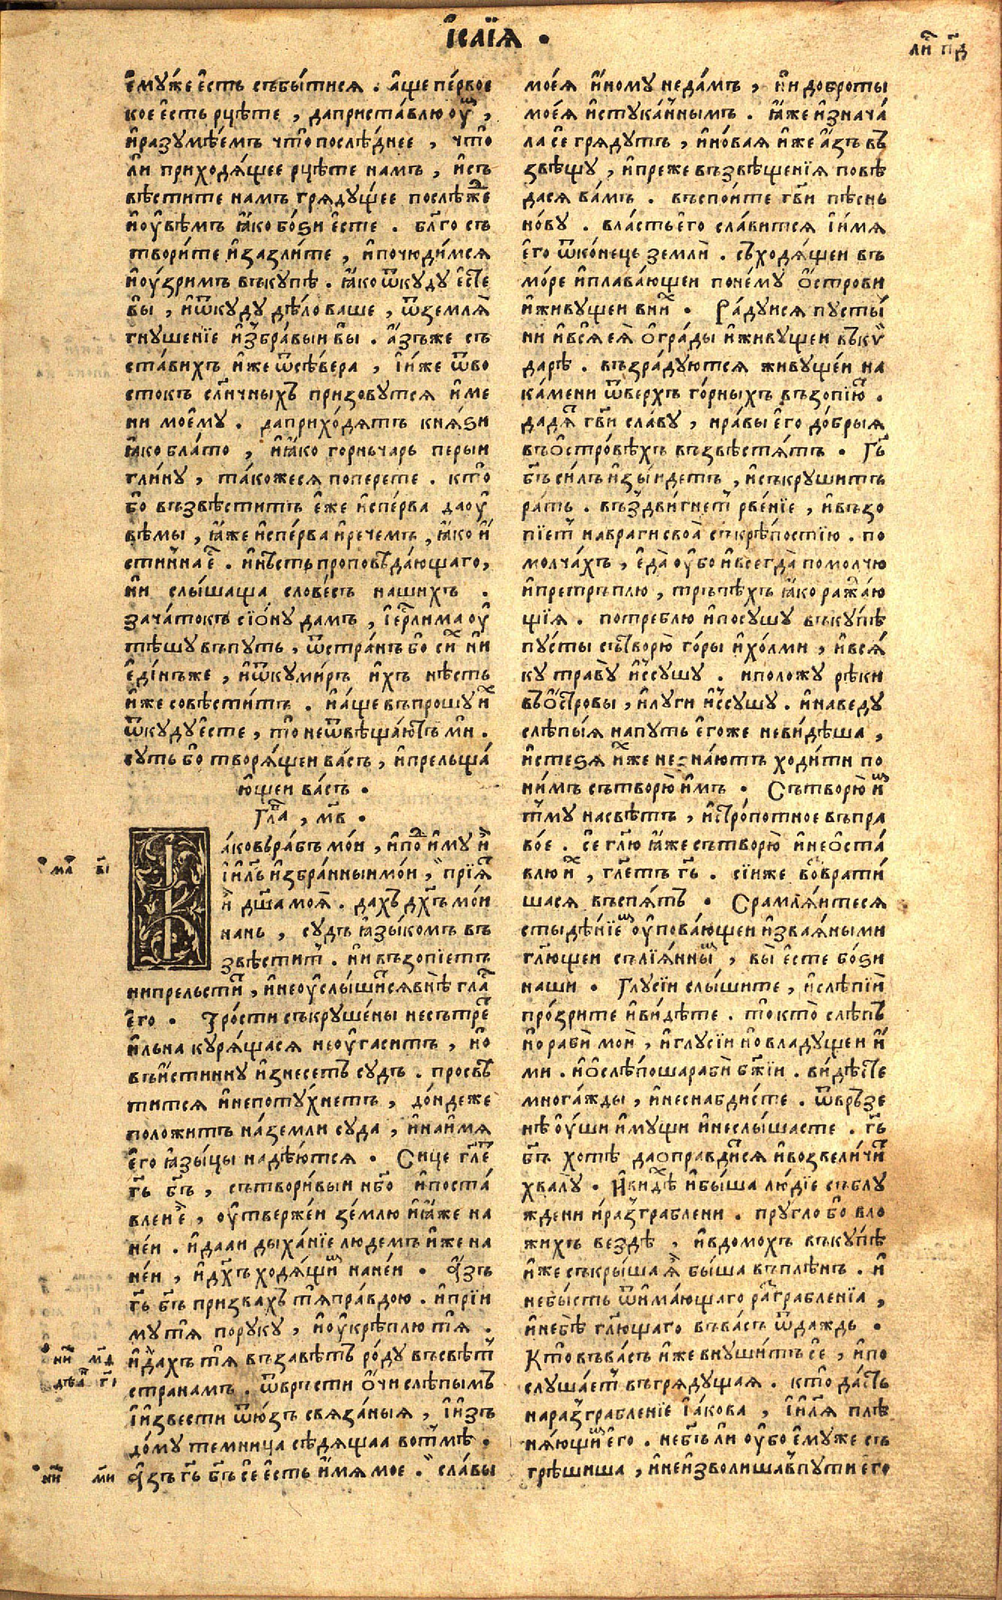 І҆саїѧ .
лⷭ҇ п҃д
є҆му́же є҆́сть събы́тисѧ . а҆́ще пе́рвое
кое є҆́сть рцѣ́те , да приста́влю оу҆́ⷨ ,
и҆ разумѣ́емъ что̀ послѣ́днее , что̀
ли приходѧ́щее рцѣ́те намъ , и҆съ
вѣсти́те намъ грѧду́щее послѣ́же
и҆ оу҆вѣ́мъ ꙗ҆́ко бо́ѕи є҆сте . бл҃го съ
твори́те и҆ зазли́те , и҆ почюди́мсѧ
и҆ оу҆́зримъ въкꙋ́пѣ . ꙗ҆́ко ѿкуду є҆стѐ
вы̀ , и҆ ѿкуду дѣ́ло ваше , ѿ землѧ̀
гнушенїе и҆збра́выи вы . а҆́зъже съ
ста́вихъ и҆́же ѿ сѣ́вера , і҆ и҆́же ѿ во
стокъ сл҃нчныхъ призову́тсѧ и҆́ме
ни мое҆му̀ . да прихо́дѧтъ кнѧ́ѕи
ꙗ҆́ко бла́то , и҆ ꙗ҆́ко горньча́рь перыи
гли́ну , та́коже сѧ попере́те . кто̀
бо възвѣсти́тъ є҆́же и҆спе́рва да оу҆
вѣ́мы , ꙗ҆́же и҆спе́рва и҆ рече́мъ , ꙗ҆́ко и҆́
стинна є҆́ . и҆ нѣ́сть проповѣ́дающаго ,
ни слы́шаща слове́съ нашихъ .
зача́токъ сїо́ну дамъ , і҆ер҃лима оу҆
тѣ́шу въпуть , ѿ стра́нъ бо си́ⷯ ни
є҆ди́нъже , и҆ ѿ куми́ръ и҆́хъ нѣ́сть
и҆́же совѣсти́тъ . и҆ а҆́ще въпрошу̀ и҆́ⷯ
ѿкуду є҆сте , то̀ не ѿвѣща́ютъ ми .
суть бо творѧ́щеи васъ , и҆ прельща́
ющеи ва́съ .
Гла̀ , м҃в .
І҆а́ковъ ра́бъ мо́и , и҆ по̀иму и҆̀
і҆и҃ль и҆збра́нныи мо́и , прїѧ́ⷮ
и҆̀ дш҃а моѧ̀ . да́хъ дх҃ъ мо́и
нань , судъ ꙗ҆зы́комъ въ
звѣсти́тъ . ни възопїе́тъ
ни прельсти́тъ , и҆ не оу҆слы́шисѧ вънѣ̀ гла́ⷭ
є҆го̀ . Тро́сти съкруше́ны не сътре́
и҆ льна курѧ́щасѧ не оу҆гаси́тъ , но
въи҆́стинну и҆знесе́тъ су́дъ . просвѣ́
титсѧ и҆ непоту́хнетъ , до́ндеже
положи́тъ на земли су́да , и҆ на и҆́мѧ
є҆го̀ ꙗ҆зы́цы надѣ́ютсѧ . Сице гл҃етъ
гь҃ бг҃ъ , сътвори́выи н҃бо и҆ поста́
влеи є҆̀ , оу҆твержеи зе́млю и҆ ꙗ҆́же на
неи . и҆ дааи дыха́нїе лю́демъ и҆́же на
не́и , и҆ дх҃ъ ходѧ́щиⷨ на не́и . А҆́зъ
гь҃ бг҃ъ призва́хъ тѧ̀ пра́вдою . и҆ прїи
му тѧ̀ по руку , и҆ оу҆крѣплю тѧ̀ .
и҆ да́хъ тѧ̀ въ завѣ́тъ ро́ду въ свѣ́тъ
страна́мъ . ѿвръсти ѻ҆́чи слѣпы́мъ
і҆ и҆зве́сти ѿ ю҆́зъ свѧза́ныѧ , і҆ и҆зъ
до́му темни́ча сѣдѧ́щаа во тмѣ̀ .
А҆́зъ гь҃ бг҃ъ се є҆́сть и҆́мѧ мое . сла́вы
моеѧ̀ и҆но́му неда́мъ , ни доброты̀
моеѧ̀ и҆стука́ннымъ . ꙗ҆́же и҆знача́
ла се грѧду́тъ , и҆ но́ваѧ и҆́же а҆́зъ въ
звѣщу̀ , и҆ пре́же възвѣще́нїѧ повѣ́
дасѧ ва́мъ . въспо́ите гв҃и пѣ́снь
но́ву . вла́сть є҆го сла́витсѧ і҆ и҆́мѧ
є҆го̀ ѿ коне́ць землѝ . съходѧ́щеи въ
мо́ре и҆ пла́вающеи по не́му ѻ҆́строви
и҆ живущеи в ни́ⷯ . Ра́дуисѧ пу́сты́
ни и҆ всѧ̀ є҆ѧ̀ ѻ҆гра́ды и҆ живу́щеи въ кѵ
да́рѣ . възра́дуютсѧ живу́щеи на
ка́мени ѿ ве́рхъ го́рныхъ възопїю́тъ .
дадѧ́тъ гв҃и сла́ву , нра́вы є҆го до́брыѧ
въ ѻ҆стро́вѣхъ възвѣстѧ́тъ . Гь҃
бг҃ъ си́лъ и҆зы́идетъ , и҆ съкруши́тъ
ра́ть . въздви́гнетъ рве́нїе , и҆ възо
пїе́тъ на враги своѧ̀ съ крѣ́постїю . по
молча́хъ , є҆да̀ оу҆́бо и҆ всегда̀ помолчю
и҆ претръплю̀ , тръпѣ́хъ ꙗ҆́ко ража́ю
щїѧ . потреблю и҆ посушу̀ въкупѣ
пу́сты сътворю̀ го́ры и҆ хо́лми , и҆ всѧ́
ку траву̀ и҆ссушу . и҆ положу̀ рѣки
въ ѻ҆́стровы , и҆ луги и҆ссушу̀ . и҆ наведу
слѣпы́ѧ на путь є҆гоже неви́дѣша ,
и҆ стеѕѧ̀ и҆́хже не зна́ютъ ходи́ти по
ни́мъ сътворю и҆́мъ . Сътворю̀ и҆́ⷨ
тму на свѣ́тъ , и҆ стро́потное въ пра
вое . се гл҃ю ꙗ҆́же сътворю̀ и҆ не ѻ҆ста́
влю и҆́ⷯ , гл҃етъ гь҃ . сїи́же возврати
шасѧ въспѧть . Срамлѧ́итесѧ
стыдѣ́нїеⷨ оу҆пова́ющеи и҆зваѧ́ными
гл҃ющеи сълїѧ́нныⷨ , вы̀ є҆сте бо́ѕи
наши . Глусїи слы́шите , и҆ слѣ́пїи
про́зрите и҆ ви́дѣте . то̀ кто̀ слѣ́пъ
но рабѝ мои́ , и҆ глусїи но владу́щеи и҆́
ми . и҆ ѻ҆слѣпоша рабѝ бж҃їи . ви́дѣсте
мно́гажды , и҆ несна́бдисте . ѿвръзе
нѣ оу҆́ши и҆му́щи и҆ неслы́шасте . гь҃
бг҃ъ хотѣ̀ да ѻ҆правди́тсѧ и҆ возвели́чиⷮ
хвалу̀ . И҆ ви́дѣхъ и҆ бы́ша лю́дїе съблу
ждени и҆ разграбле́ни . пру́гло бо вло
жихъ вездѣ̀ , и҆ в домо́хъ въкупѣ
и҆́же съкры́ша ѧ҆̀ бы́ша въ плѣнъ . и҆
небы́сть ѿима́ющаго разграбле́нїѧ ,
и҆ небѣ̀ гл҃ющаго въ ва́съ ѿда́ждь .
Кто̀ въ ва́съ и҆́же внуши́тъ се , и҆ по
слу́шаетъ въ грѧду́щаѧ . кто̀ да́стъ
на разграбле́нїе і҆а́кова , і҆ и҃лѧ плѣ
нѧ́ющиⷨ є҆го . не бг҃ъ ли оу҆́бо є҆му́же съ
грѣши́ша , и҆ не и҆зво́лиша в пути є҆го
ма҃ в҃і
н҃и м҃д
дѣѧ҃ г҃і
н҃и м҃и